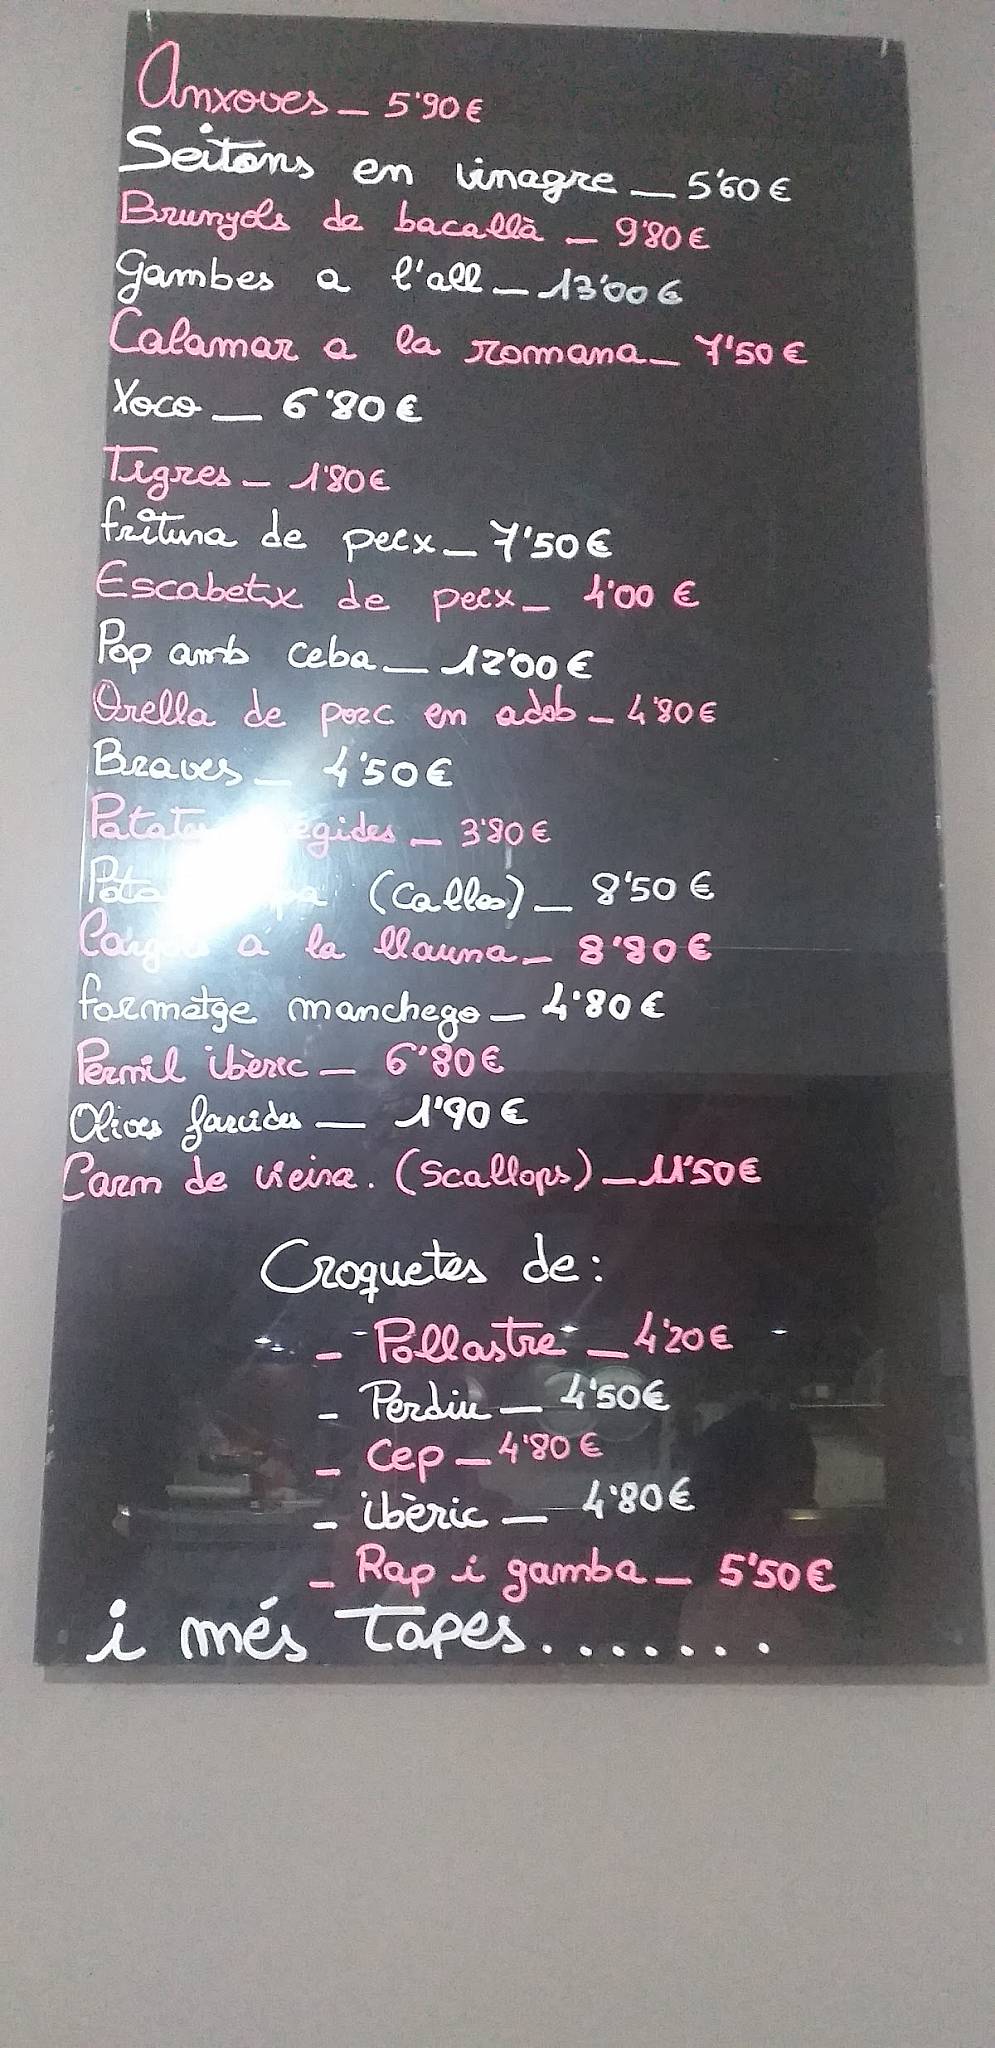 Anxoves _ 5'90 €
Seitons en vinagre _ 5'60 €
Brunyols de bacallà _ 9'80 €
Gambes a l'all _ 13'00 €
Calamar a la romana _ 7'50 €
Xoco _ 6'80 €
Tigres _ 1'80 €
fritura de peix _ 7'50 €
Escabetx de peix _ 4'00 €
Pop amb ceba _ 12'00 €
Orella de porc en adob _ 4'80 €
Braves _ 4'50 €
_ 3'80 €
(Callos) _ 8'50 €
Cargols a la llauna _ 8'80 €
formatge manchego _ 4'80 €
Pernil ibèric _ 6'80 €
Olives farcides _ 1'90 €
Carn de vieira. (Scallops) _ 11'50 €
Croquetes de:
- Pollastre _ 4'20 €
- Perdiu _ 4'50 €
- Cep _ 4'80 €
- ibèric _ 4'80 €
- Rap i gamba _ 5'50 €
i més Tapes.......